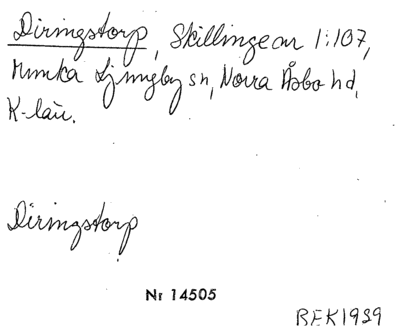 Diringstorp, Skillinge av 1:107,
Munka Ljungby sn, Norra Åsbo hd,
K-län.
Diringstorp
Nr 14505
BEK 1939